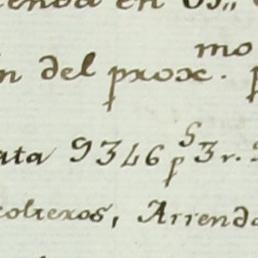 en
n del prox.mo p
ata 9346 ps 3 r.
colteros, Arrenda